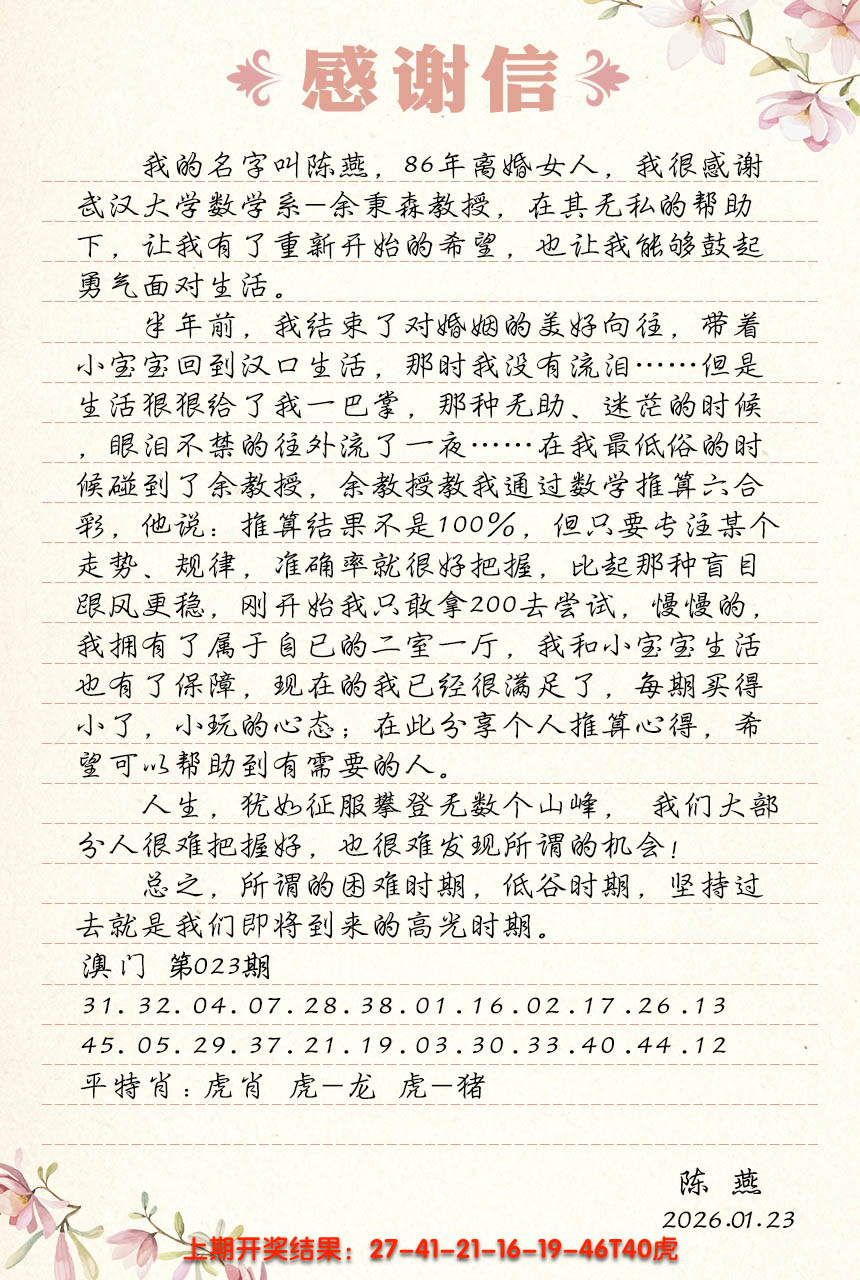 感谢信
我的名字叫陈燕，86年离婚女人，我很感谢
武汉大学数学系—余秉森教授，在其无私的帮助
下，让我有了重新开始的希望，也让我能够鼓起
勇气面对生活。
半年前，我结束了对婚姻的美好向往，带着
小宝宝回到汉口生活，那时我没有流泪……但是
生活狠狠给了我一巴掌，那种无助、迷茫的时候
，眼泪不禁的往外流了一夜……在我最低俗的时
候碰到了余教授，余教授教我通过数学推算六合
彩，他说：推算结果不是100%，但只要专注某个
走势、规律，准确率就很好把握，比起那种盲目
跟风更稳，刚开始我只敢拿200去尝试，慢慢的，
我拥有了属于自已的二室一厅，我和小宝宝生活
也有了保障，现在的我已经很满足了，每期买得
小了，小玩的心态；在此分享个人推算心得，希
望可以帮助到有需要的人。
人生，犹如征服攀登无数个山峰， 我们大部
分人很难把握好，也很难发现所谓的机会！
总之，所谓的困难时期，低谷时期，坚持过
去就是我们即将到来的高光时期。
澳门 第023期
31.32.04.07.28.38.01.16.02.17.26.13
45.05.29.37.21.19.03.30.33.40.44.12
平特肖：虎肖 虎—龙 虎—猪
陈 燕
2026.01.23
上期开奖结果：27-41-21-16-19-46T40虎